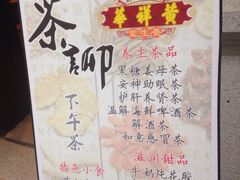 黄祥華
養生堂
茶詷
下午茶
養生茶品
黑糖姜母茶
安神助眠茶
护肝养肾茶
温解海鲜啤酒茶
解酒茶
如意感冒茶
滋润甜品
牛奶炖花胶
特色小食